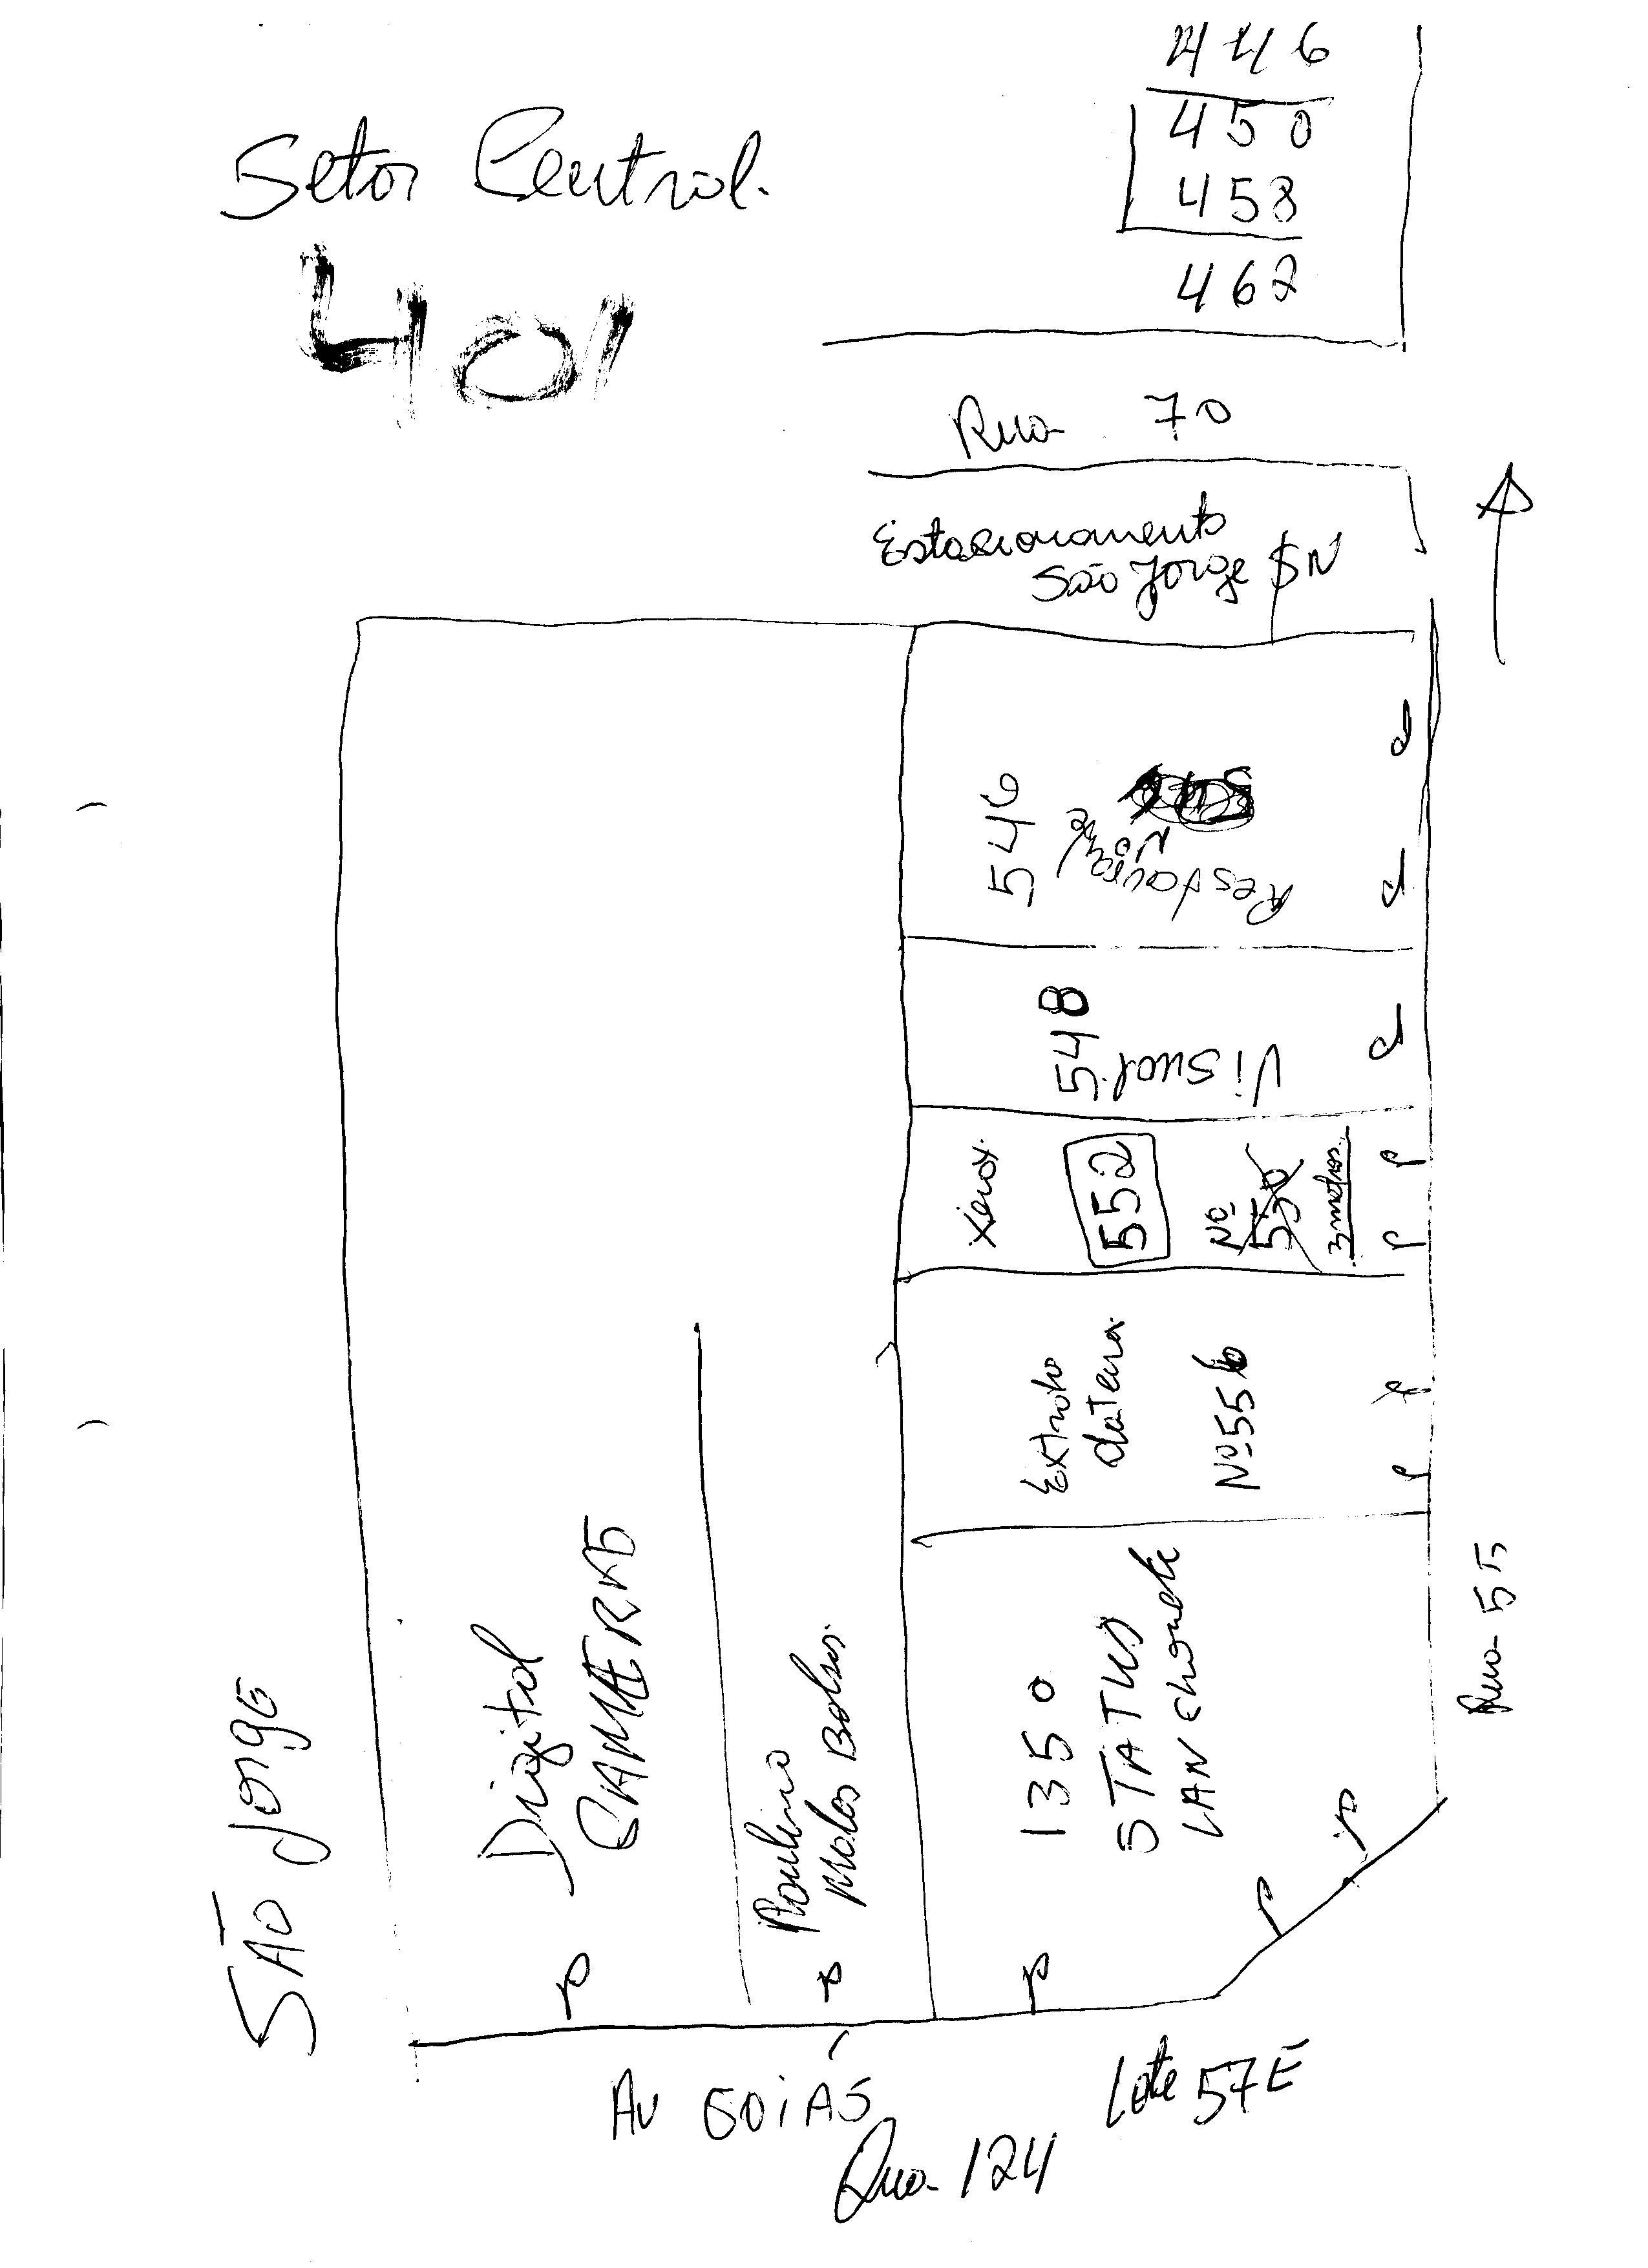 446
450
458
462
Setor Central.
401
Rua 70
Estacionamento
São Jorge SN
546
Restaurante
No
548
Visual
xerox
552
Nº
550
3 metros
Extrato
Nº 556
1350
STATUS
LANchonete
Rua 55
Digital
Paulino
Malas Bolsas.
SÃO JorgE
Av GOiÁS
Lote 57E
Qua. 124